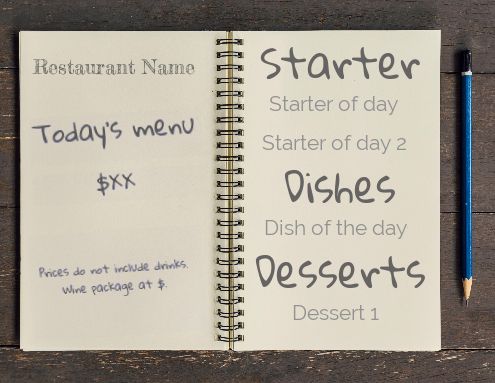 Restaurant Name
Today's menu
$XX
Prices do not include drinks.
Wine package at $.
Starter
Starter of day
Starter of day 2
Dishes
Dish of the day
Desserts
Dessert 1